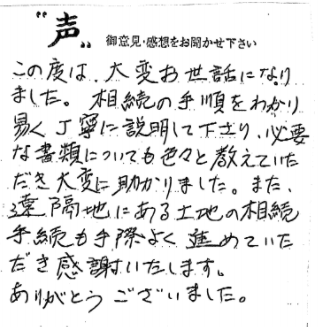 "声" 御意見・感想をお聞かせ下さい
この度は、大変お世話になり
ました。相続の手順をわかり
易く丁寧に説明して下さり、必要
な書類についても色々と教えていた
だき大変に助かりました。また、
遠隔地にある土地の相続
手続も手際よく進めていた
だき感謝いたします。
ありがとうございました。